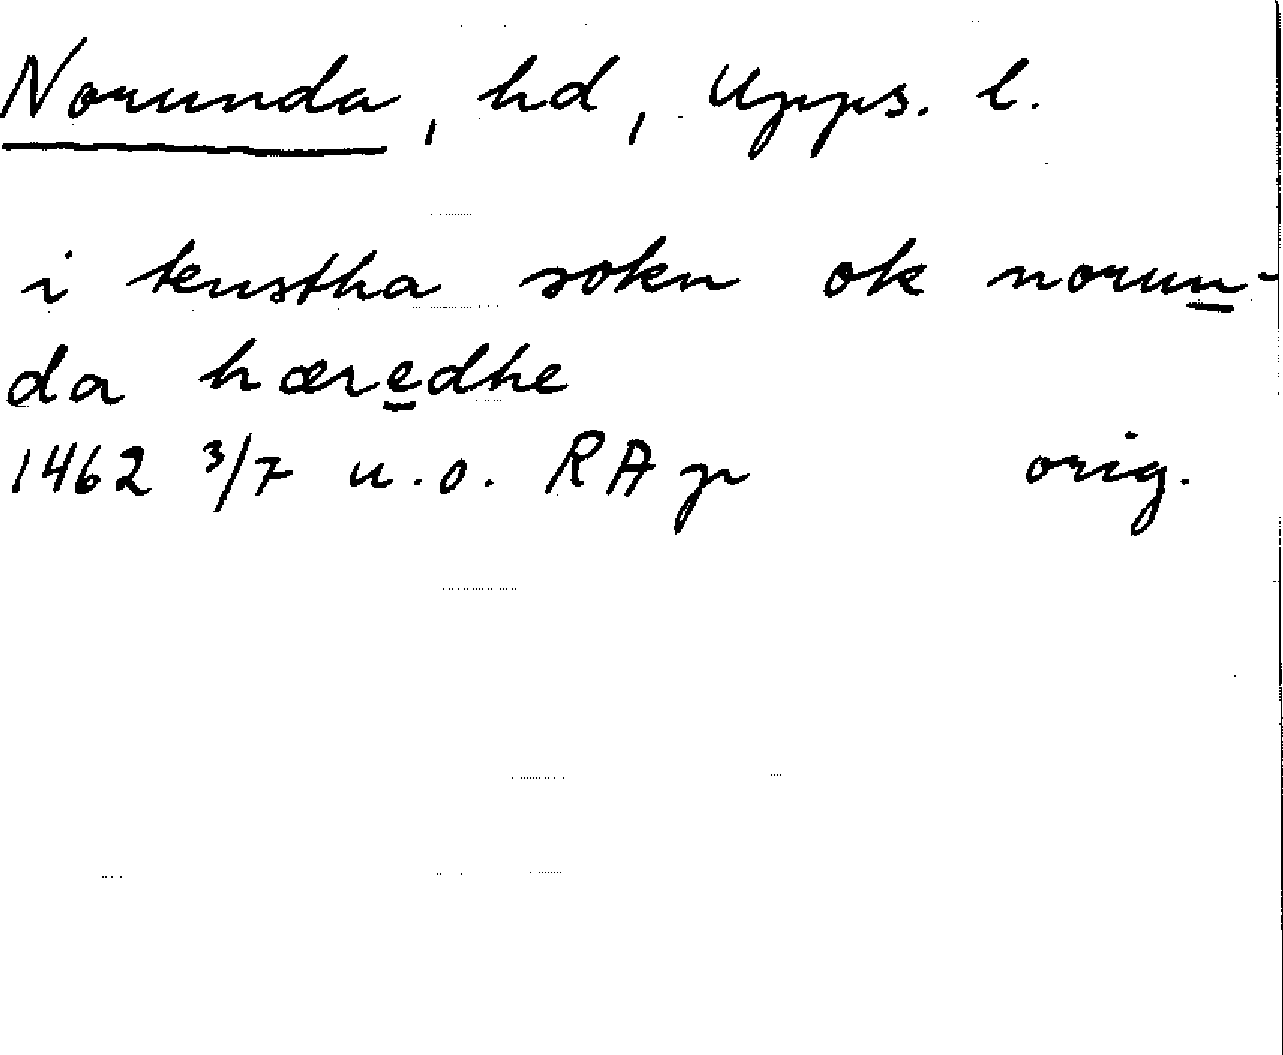 Norunda, hd, Upps. l.
i tenstha sokn ok norun-
da hæredhe
1462 3/7 u.o. RAp orig.